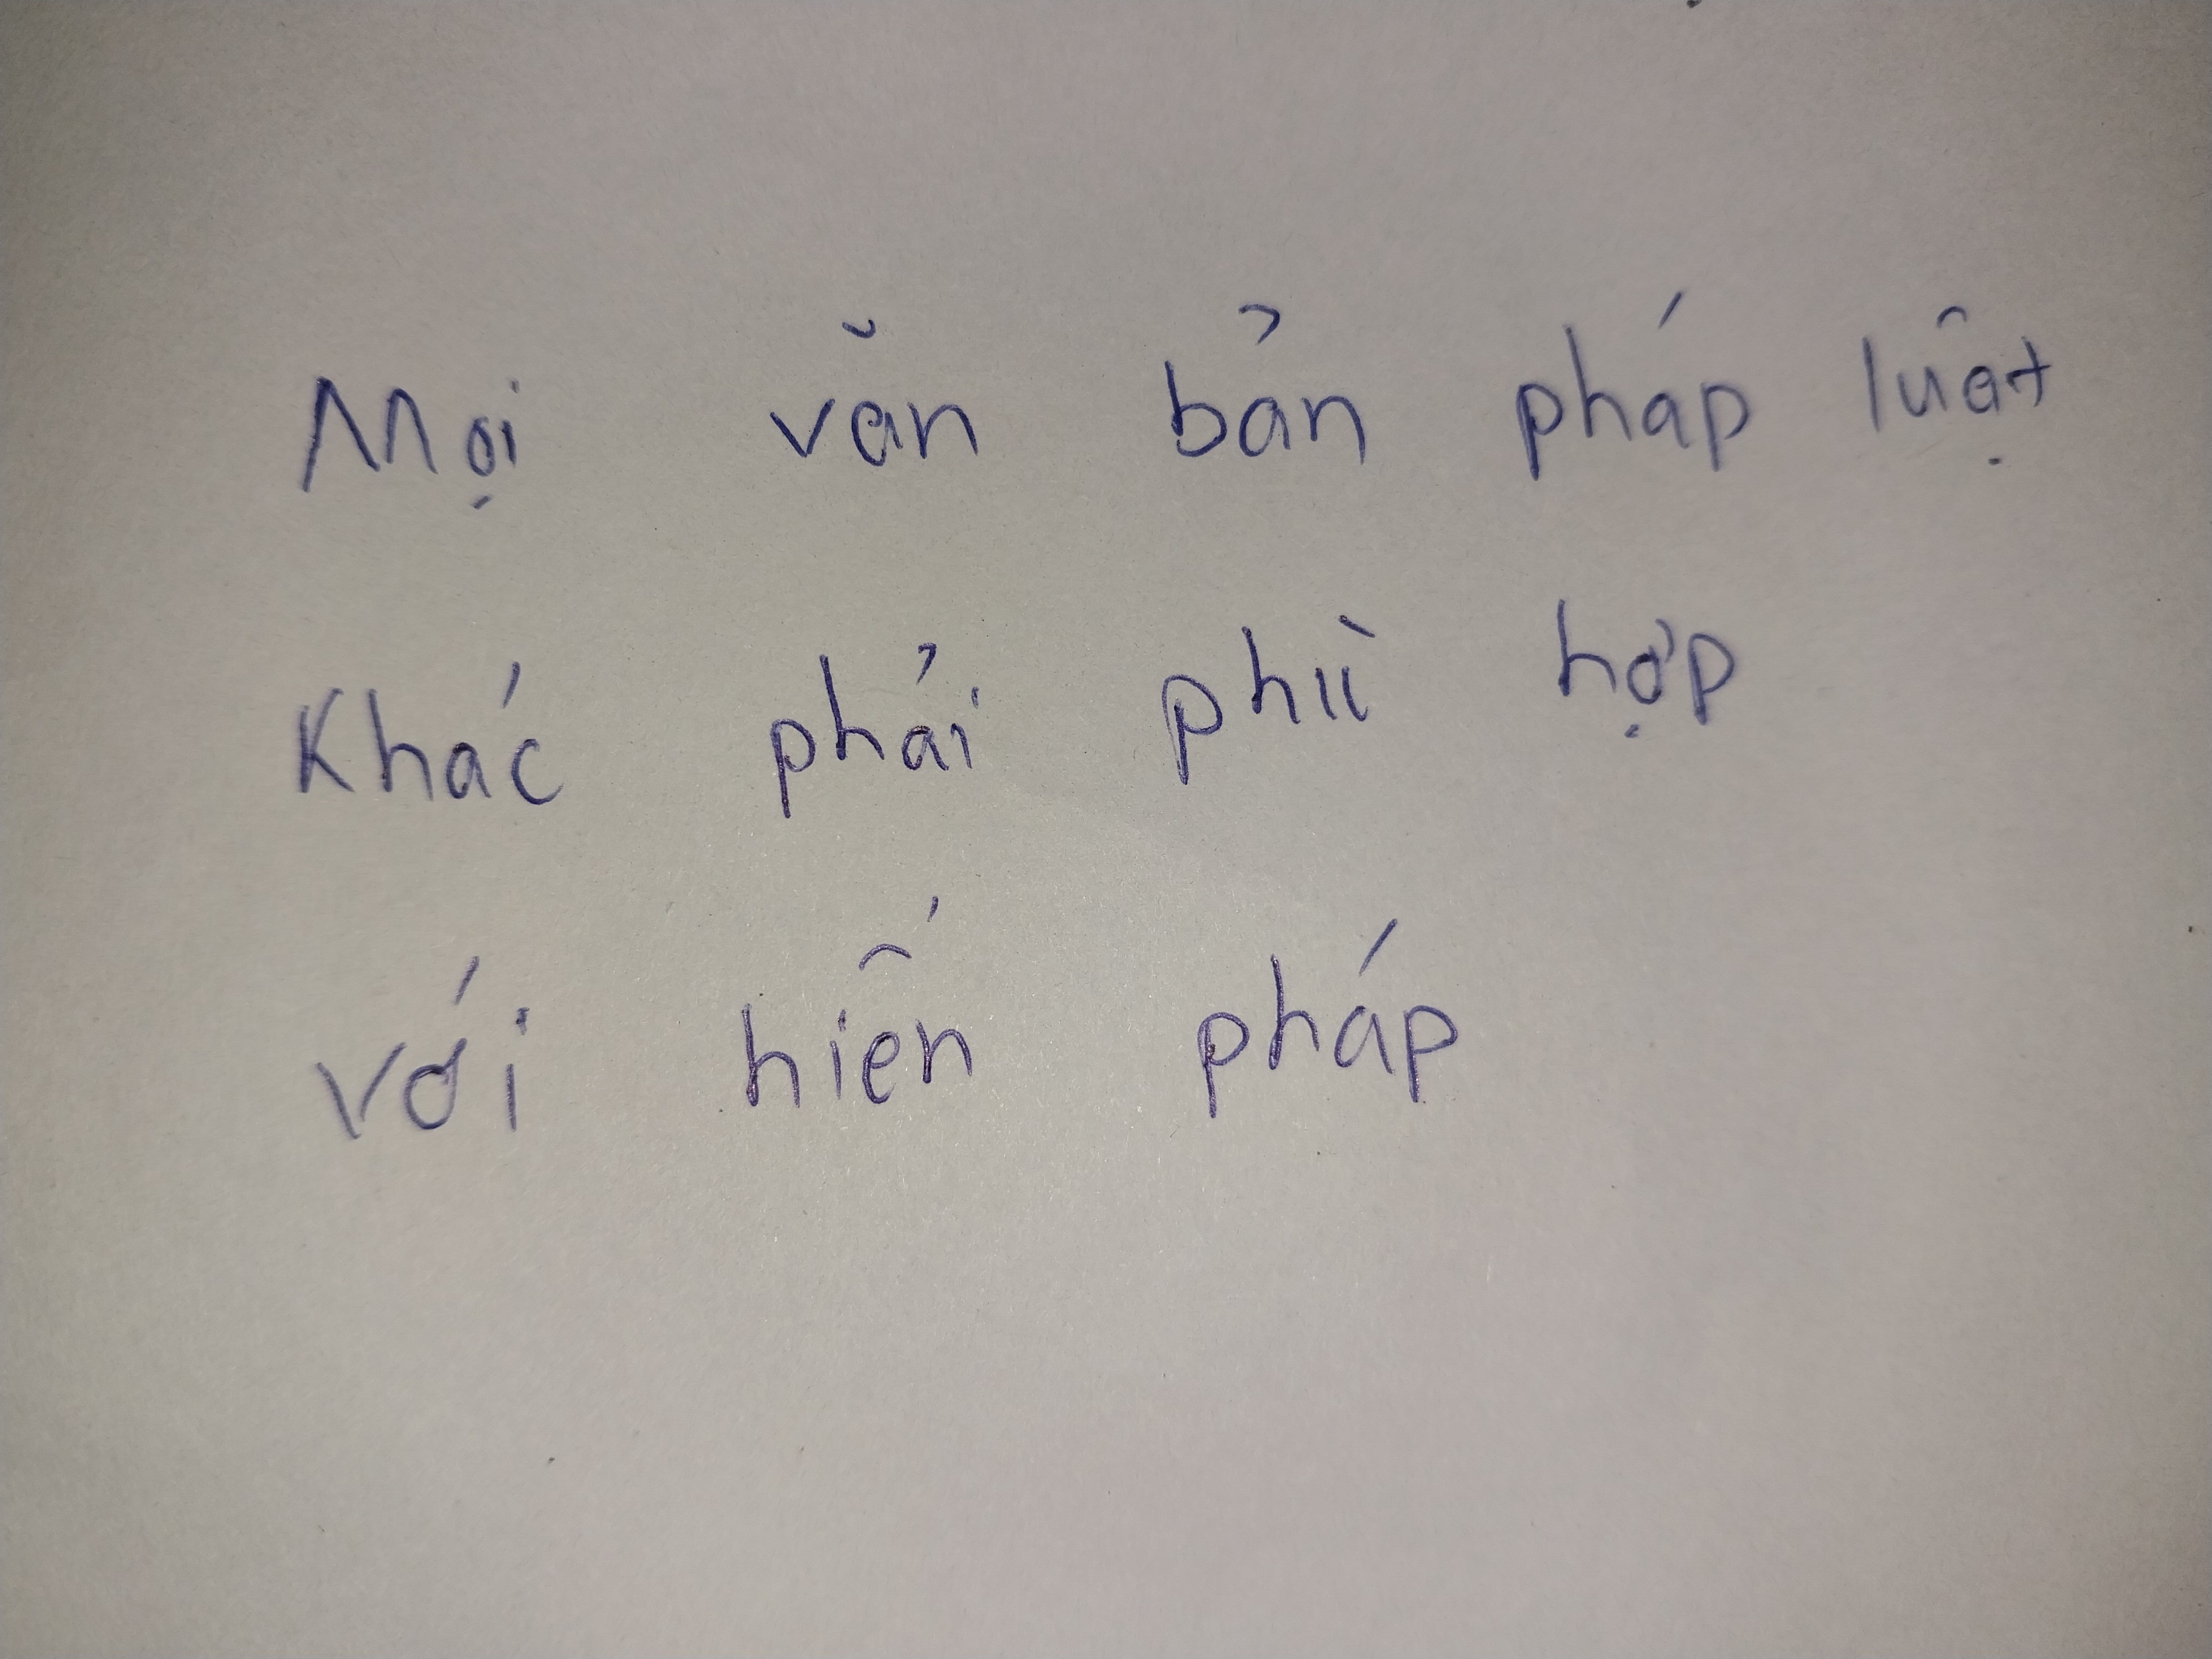 Mọi văn bản pháp luật
Khác phải phù hợp
với hiến pháp